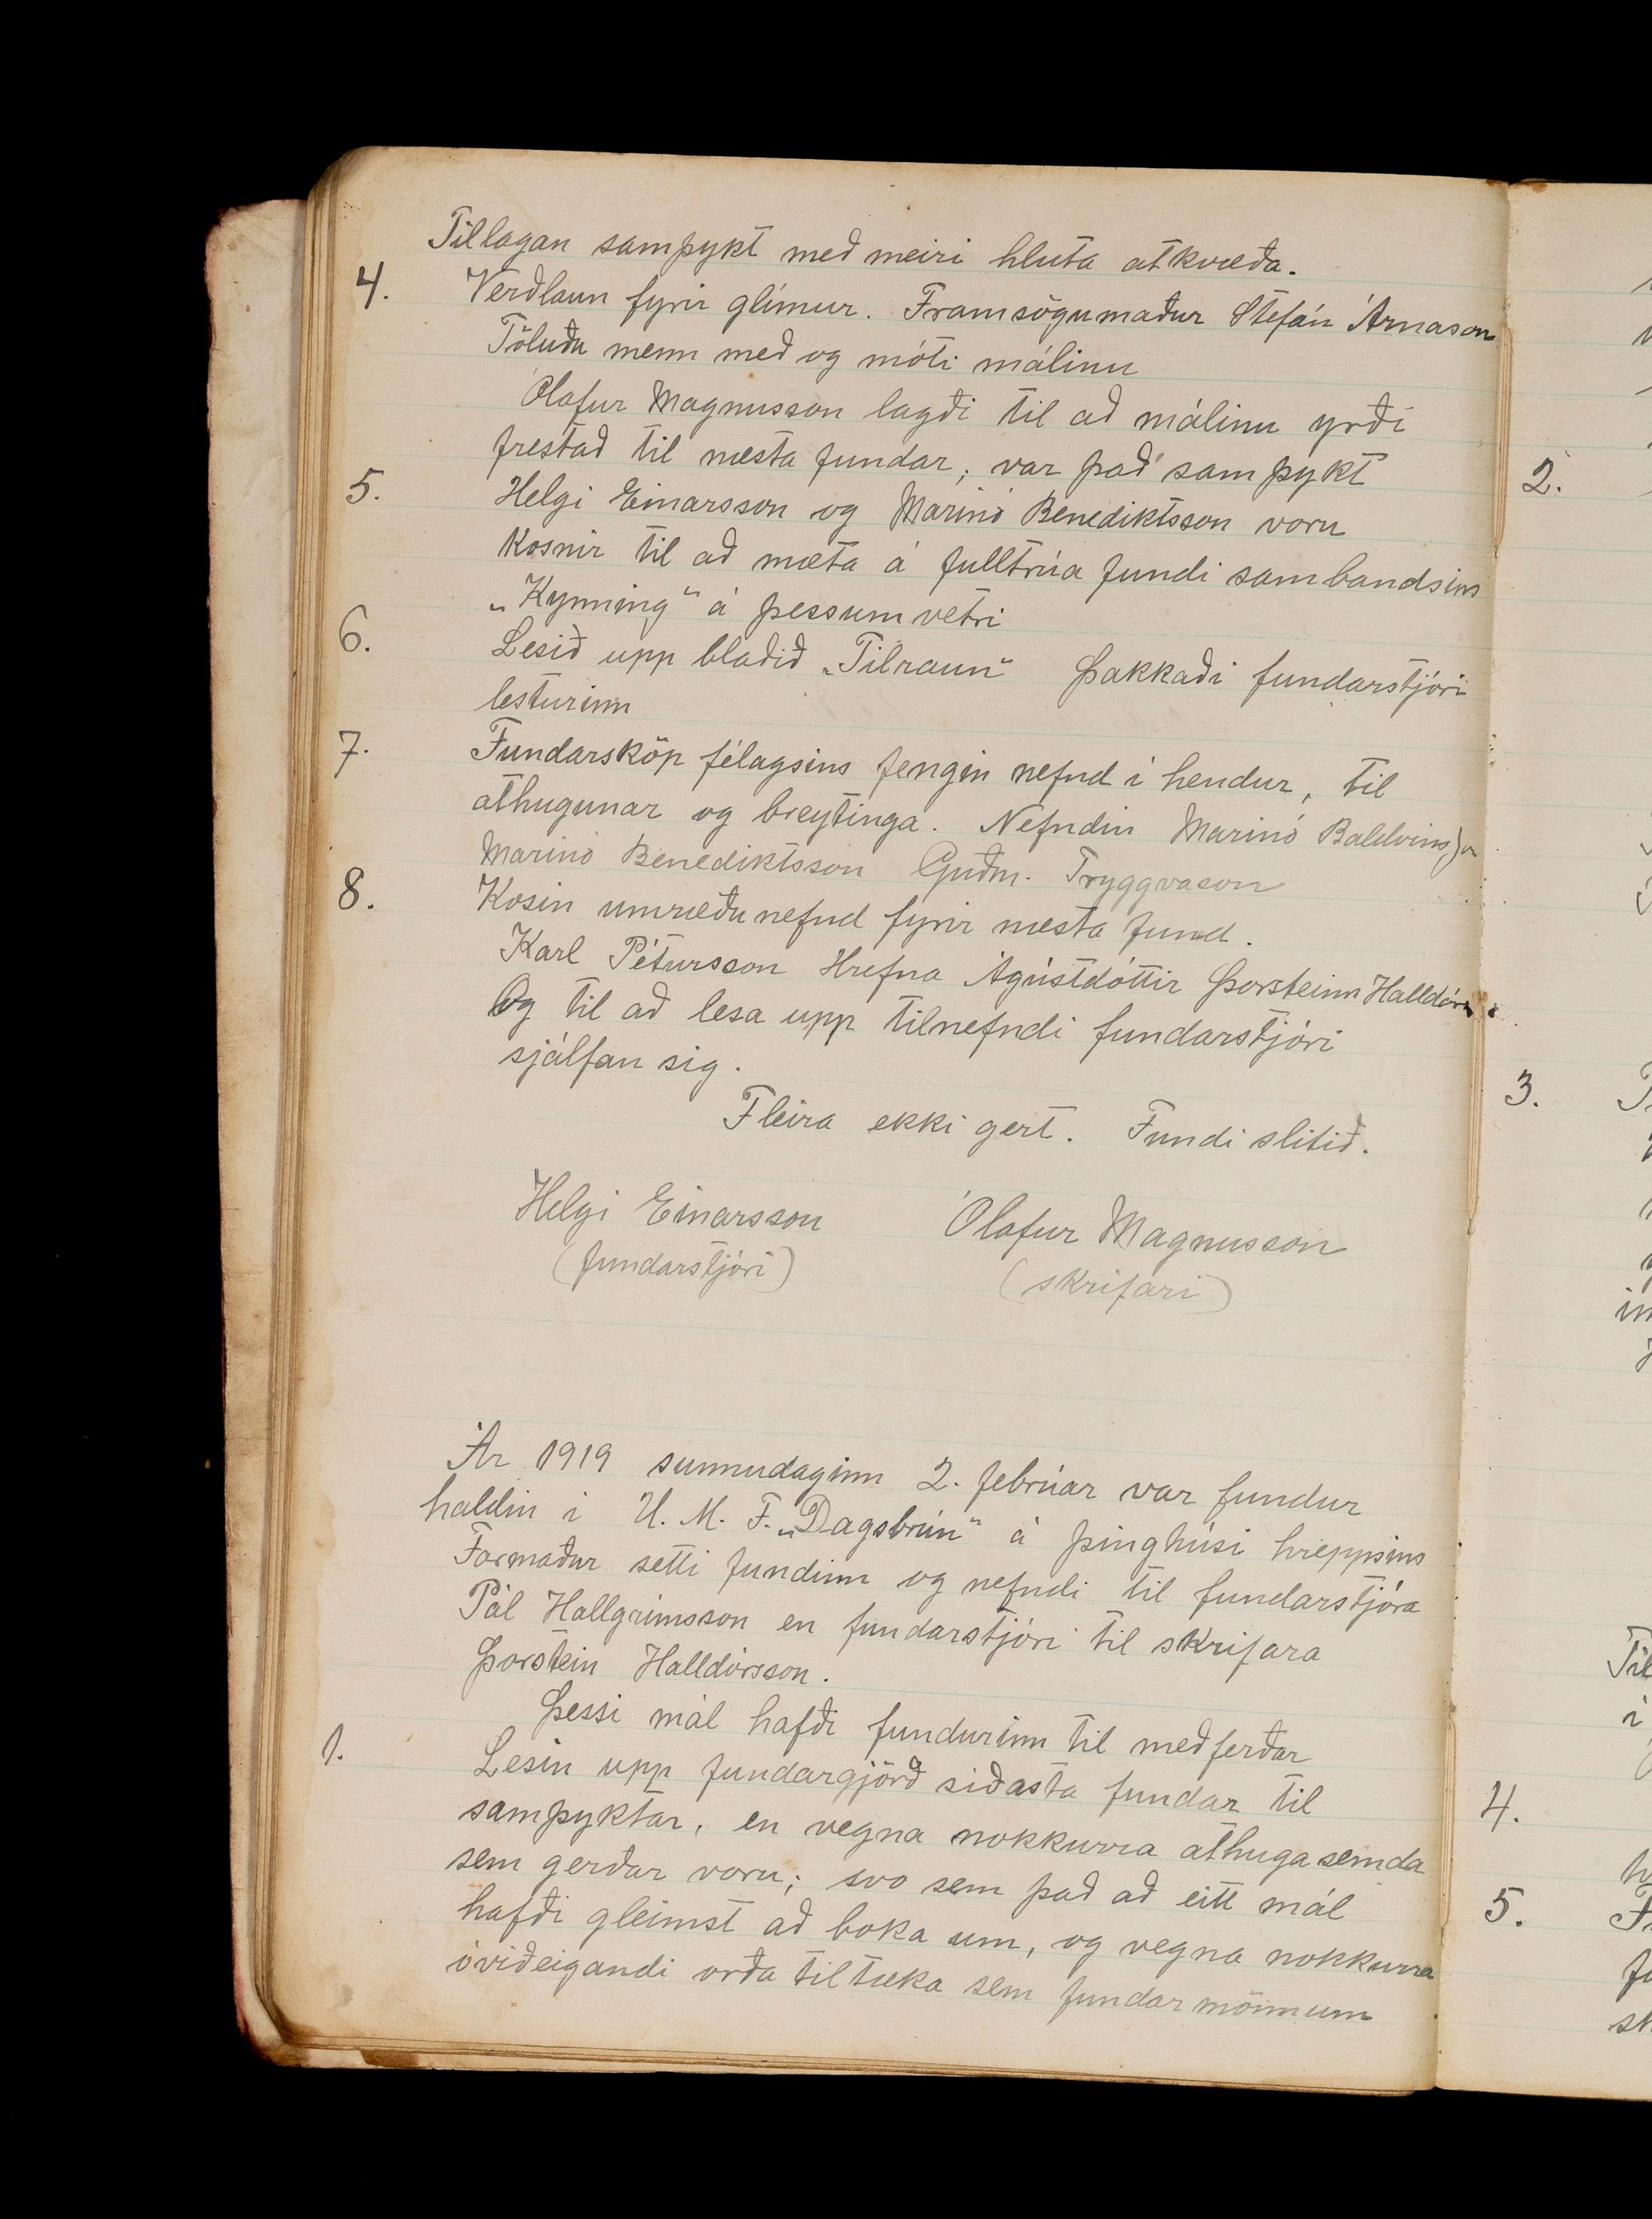 Tillagan samþykt með meiri hluta atkvæða.
4. Verðlaun fyrir glímur. Framsögumaður Stefán Árnason
Töluðu menn með og móti málinu
Ólafur Magnusson lagði til að málinu yrði
frestað til næsta fundar; var það samþykt
5. Helgi Einarsson og Marinó Benediktsson voru
kosnir til að mæta á fulltrúa fundi sambandsins
„Kynning“ á þessum vetri
6. Lesið upp blaðið „Tilraun“ Þakkaði fundarstjóri
lesturinn
7. Fundarsköp félagsins fengin nefnd í hendur, til
athugunar og breytinga. Nefndin Marinó Baldvinss
Marinó Benediktsson Guðm. Tryggvason
8. Kosin umræðunefnd fyrir næsta fund.
Karl Pétursson Hrefna Ágústdóttir Þorsteinn Halldórs.
Og til að lesa upp tilnefndi fundarstjóri
sjálfan sig.
Fleira ekki gert. Fundi slitið.
Helgi Einarsson Ólafur Magnusson
(fundarstjóri) (skrifari)
Ár 1919 sunnudaginn 2. febrúar var fundur
haldin í U. M. F. „Dagsbrún“ á þinghúsi hreppsins
Formaður setti fundinn og nefndi til fundarstjóra
Pál Hallgrímsson en fundarstjóri til skrifara
Þorstein Halldórsson.
Þessi mál hafði fundurinn til meðferðar
1. Lesin upp fundargjörð síðasta fundar til
samþyktar, en vegna nokkurra athugasemda
sem gerðar voru; svo sem það að eitt mál
hafði gleimst að boka um, og vegna nokkurra
óviðeigandi orða tiltæka sem fundar mönnum
2.
3.
in
Til
í
4.
5.